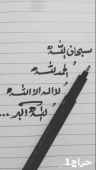 سبحان الله
الحمد لله
لا اله الا الله
الله اكبر ...
حراج1